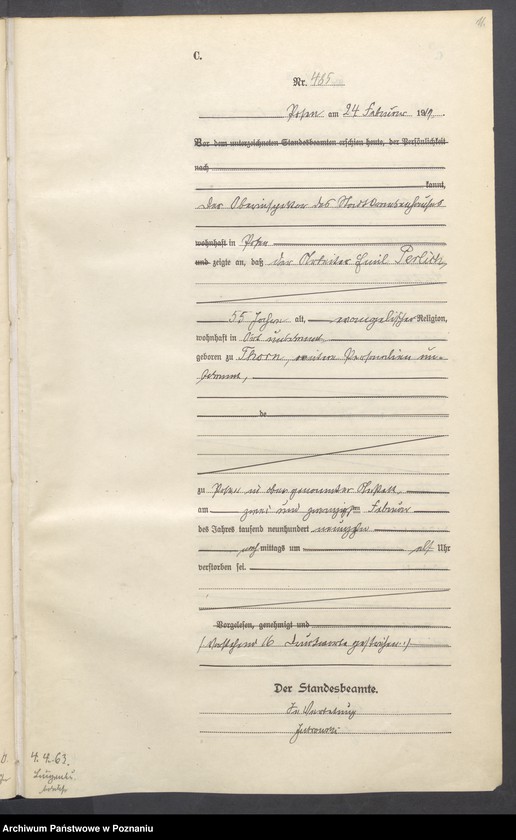 C.
Nr. 485
Posen am 24 Februar 1919.
Vor dem unterzeichneten Standesbeamten erschien heute, der Persönlichkeit
nach
kannt,
der Oberinspektor des Stadtkrankenhauses
wohnhaft in Posen
und zeigte an, daß der Arbeiter Emil
55 Jahre alt, evangelischer Religion,
wohnhaft in Ort unbekannt
geboren zu Thorn, weitere Personalien un-
bekannt,
de
zu Posen in oben genannter Anstalt
am zwei und zwanzigsten Februar
des Jahres tausend neunhundert neunzehn
nachmittags um elf Uhr
verstorben sei.
Vorgelesen, genehmigt und
(Vorstehend 16 Druckworte gestrichen.)
Der Standesbeamte.
In Vertretung
4. 4. 63.
Archiwum Państwowe w Poznaniu